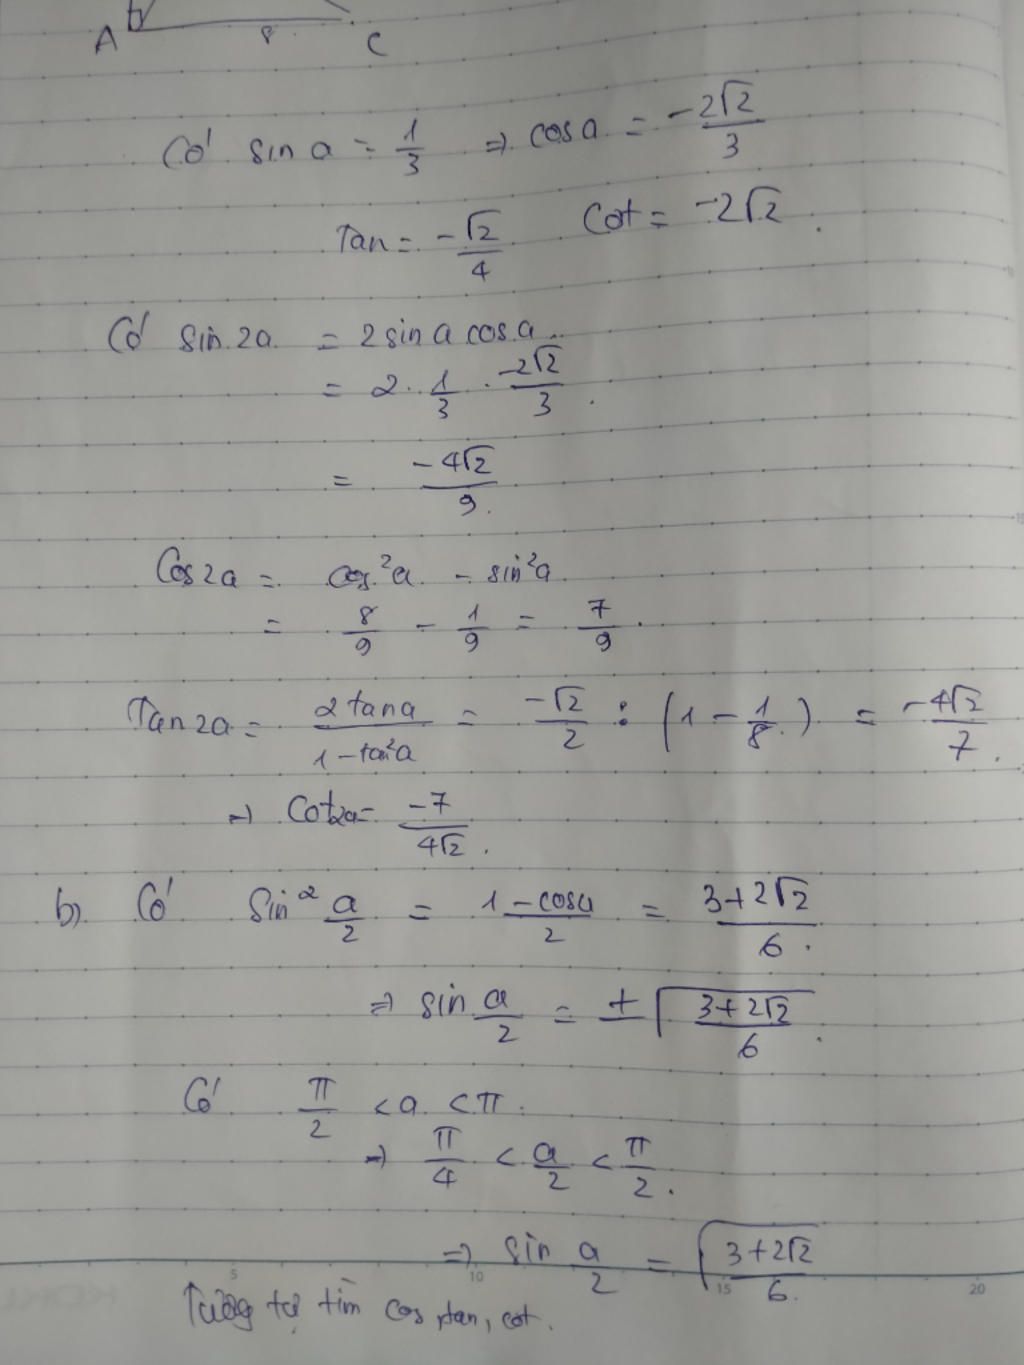 A 8 C
Có sin a = 1/3 ⇒ cos a = -2√2/3
Tan = -√2/4 Cot = -2√2.
Có sin 2a = 2 sin a cos a
= 2 . 1/3 . -2√2/3.
= -4√2/9.
Cos2a = cos²a - sin²a
= 8/9 - 1/9 = 7/9.
Tan2a = 2tana/1-tan²a = -√2/2 : (1 - 1/8) = -4√2/7.
⇒ Cot2a = -7/4√2.
b) Có Sin² a/2 = 1-cosa/2 = 3+2√2/6.
⇒ sin a/2 = ±√(3+2√2/6).
Có π/2 < a < π.
⇒ π/4 < a/2 < π/2.
⇒ sin a/2 = √(3+2√2/6).
5 10 15 20
Tương tự tìm cos, tan, cot.